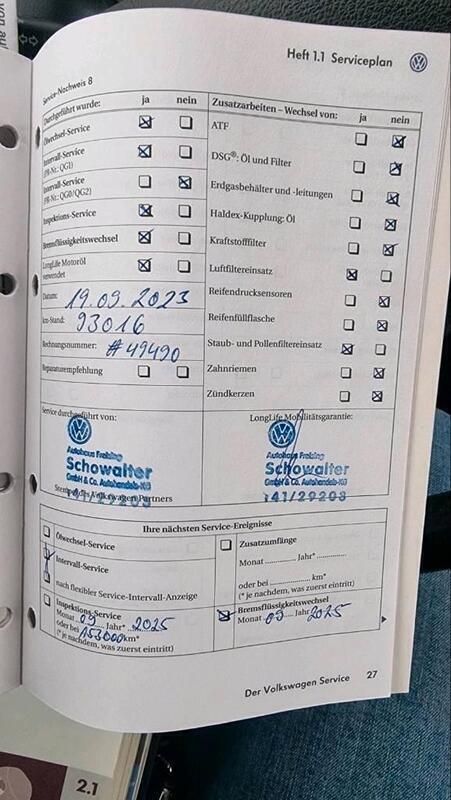 von au
Heft 1.1 Serviceplan
Service-Nachweis 8
Durchgeführt wurde: ja nein
Ölwechsel-Service
Intervall-Service
(PR-Nr.: QG1)
Intervall-Service
(PR-Nr.: QG0/QG2)
Inspektions-Service
Bremsflüssigkeitswechsel
LongLife Motoröl
verwendet
Datum: 19.09.2023
km-Stand: 93016
Rechnungsnummer: #49490
Reparaturempfehlung
Zusatzarbeiten – Wechsel von: ja nein
ATF
DSG®: Öl und Filter
Erdgasbehälter und -leitungen
Haldex-Kupplung: Öl
Kraftstofffilter
Luftfiltereinsatz
Reifendrucksensoren
Reifenfüllflasche
Staub- und Pollenfiltereinsatz
Zahnriemen
Zündkerzen
Service durchgeführt von:
Autohaus Freising
Schowalter
GmbH & Co. Autohandels-KG
141/29208
Stempel des Volkswagen Partners
LongLife Mobilitätsgarantie:
Autohaus Freising
Schowalter
GmbH & Co. Autohandels-KG
141/29208
Ihre nächsten Service-Ereignisse
Ölwechsel-Service
Intervall-Service
nach flexibler Service-Intervall-Anzeige
Inspektions-Service
Monat 09 Jahr* 2025
oder bei 153000 km*
(* je nachdem, was zuerst eintritt)
Zusatzumfänge
Monat ............ Jahr* ................
oder bei ..................... km*
(* je nachdem, was zuerst eintritt)
Bremsflüssigkeitswechsel
Monat 09 Jahr 2025
Der Volkswagen Service 27
2.1